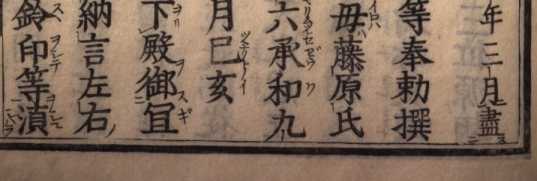 年三月盡
等奉勅撰
毋藤原氏
六承和九
月巳亥
下殿御冝
納言左右
鈴印等漬